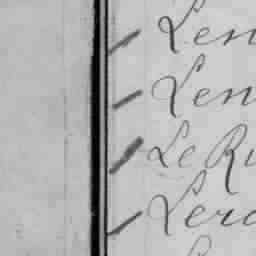 Len
Len
LeRu
Lero